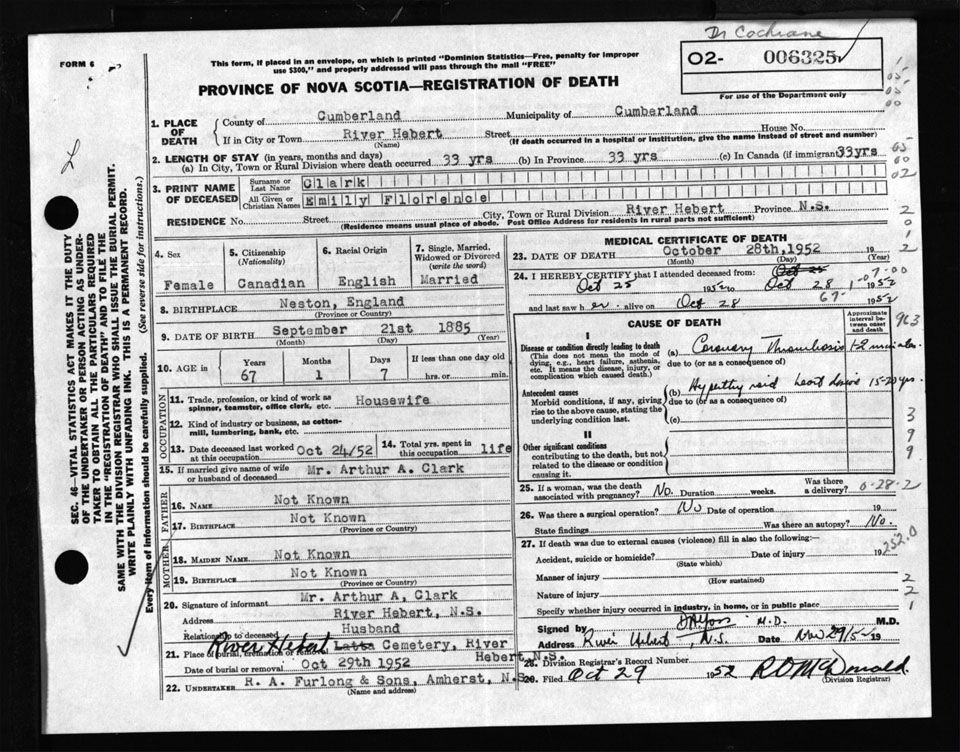 Dr Cochrane
FORM 6
This form, if placed in an envelope, on which is printed "Dominion Statistics—Free, penalty for improper
use $300," and properly addressed will pass through the mail "FREE"
O2- 006325
For use of the Department only
PROVINCE OF NOVA SCOTIA—REGISTRATION OF DEATH
1. PLACE OF DEATH County of Cumberland Municipality of Cumberland
If in City or Town River Hebert Street House No.
(Name) (If death occurred in a hospital or institution, give the name instead of street and number)
2. LENGTH OF STAY (in years, months and days)
(a) In City, Town or Rural Division where death occurred 33 yrs (b) In Province 33 yrs (c) In Canada (if immigrant) 33yrs
3. PRINT NAME OF DECEASED Surname or Last Name Clark
All Given or Christian Names Emily Florence
RESIDENCE No. Street City, Town or Rural Division River Hebert Province N.S.
(Residence means usual place of abode. Post Office Address for residents in rural parts not sufficient)
4. Sex Female
5. Citizenship (Nationality) Canadian
6. Racial Origin English
7. Single, Married, Widowed or Divorced (write the word) Married
8. BIRTHPLACE Neston, England
(Province or Country)
9. DATE OF BIRTH September 21st 1885
(Month) (Day) (Year)
10. AGE in Years 67 Months 1 Days 7 If less than one day old hrs. or min.
OCCUPATION
11. Trade, profession, or kind of work as spinner, teamster, office clerk, etc. Housewife
12. Kind of industry or business, as cotton-mill, lumbering, bank, etc.
13. Date deceased last worked at this occupation Oct 24/52 14. Total yrs. spent in this occupation life
15. If married give name of wife or husband of deceased Mr. Arthur A. Clark
FATHER
16. NAME Not Known
17. BIRTHPLACE Not Known
(Province or Country)
MOTHER
18. MAIDEN NAME Not Known
19. BIRTHPLACE Not Known
(Province or Country)
20. Signature of informant Mr. Arthur A. Clark
Address River Hebert, N.S.
Relationship to deceased Husband
21. Place of burial, cremation or removal River Hebert Latta Cemetery, River Hebert N.S.
Date of burial or removal Oct 29th 1952
22. UNDERTAKER R. A. Furlong & Sons, Amherst, N.S.
(Name and address)
MEDICAL CERTIFICATE OF DEATH
23. DATE OF DEATH October 28th, 1952 19
(Month) (Day) (Year)
24. I HEREBY CERTIFY that I attended deceased from: Oct 25
Oct 25 1952 to Oct 28 1952
and last saw her alive on Oct 28 1952
CAUSE OF DEATH
Approximate interval between onset and death
I
Disease or condition directly leading to death
(This does not mean the mode of dying, e.g., heart failure, asthenia, etc. It means the disease, injury, or complication which caused death.)
(a) Coronary Thrombosis 1-2 minutes
due to (or as a consequence of)
Antecedent causes
Morbid conditions, if any, giving rise to the above cause, stating the underlying condition last.
(b) Hyperthyroid heart disease 15-20 yrs.
due to (or as a consequence of)
(c)
II
Other significant conditions
contributing to the death, but not related to the disease or condition causing it.
25. If a woman, was the death associated with pregnancy? No. Duration weeks. Was there a delivery?
26. Was there a surgical operation? No Date of operation 19
State findings Was there an autopsy? No.
27. If death was due to external causes (violence) fill in also the following:—
Accident, suicide or homicide? Date of injury 19
(State which)
Manner of injury
(How sustained)
Nature of injury
Specify whether injury occurred in industry, in home, or in public place
Signed by M.D. M.D.
Address River Hebert, N.S. Date Nov 29/52 19
28. Division Registrar's Record Number
29. Filed Oct 29 1952 R D McDonald
(Division Registrar)
SEC. 46—VITAL STATISTICS ACT MAKES IT THE DUTY
OF THE UNDERTAKER OR PERSON ACTING AS UNDER-
TAKER TO OBTAIN ALL THE PARTICULARS REQUIRED
IN THE "REGISTRATION OF DEATH" AND TO FILE THE
SAME WITH THE DIVISION REGISTRAR WHO SHALL ISSUE THE BURIAL PERMIT.
WRITE PLAINLY WITH UNFADING INK. THIS IS A PERMANENT RECORD.
Every item of information should be carefully supplied. (See reverse side for instructions.)